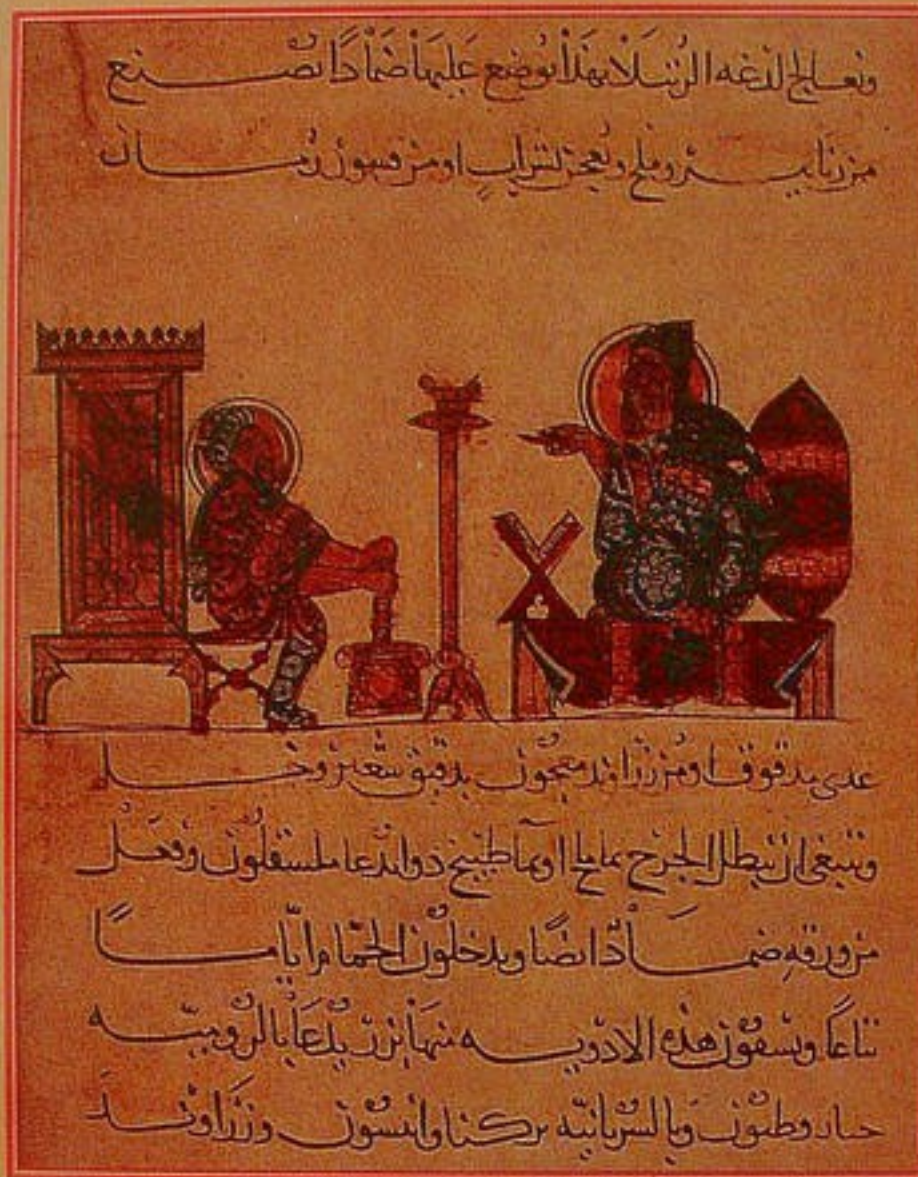 ونعالج لدغه الرتيلا بهذا يوضع عليها ضمادًا يصنع
من رماد تين وملح ويعجن بشراب او من قشور رمان
مدقوق او من زراوند معجون بدقيق شعير وخل
وينبغي ان يبطل الجرح بما او بما طبيخ دوا يدعا وفعل
من ورقه ضمادًا ايضًا ويدخلون الحمام ايامًا
تباعًا ويسقون هذه الادويه منها بزر يدعا بالروميه
وبالسريانيه وانيسون وزراوند